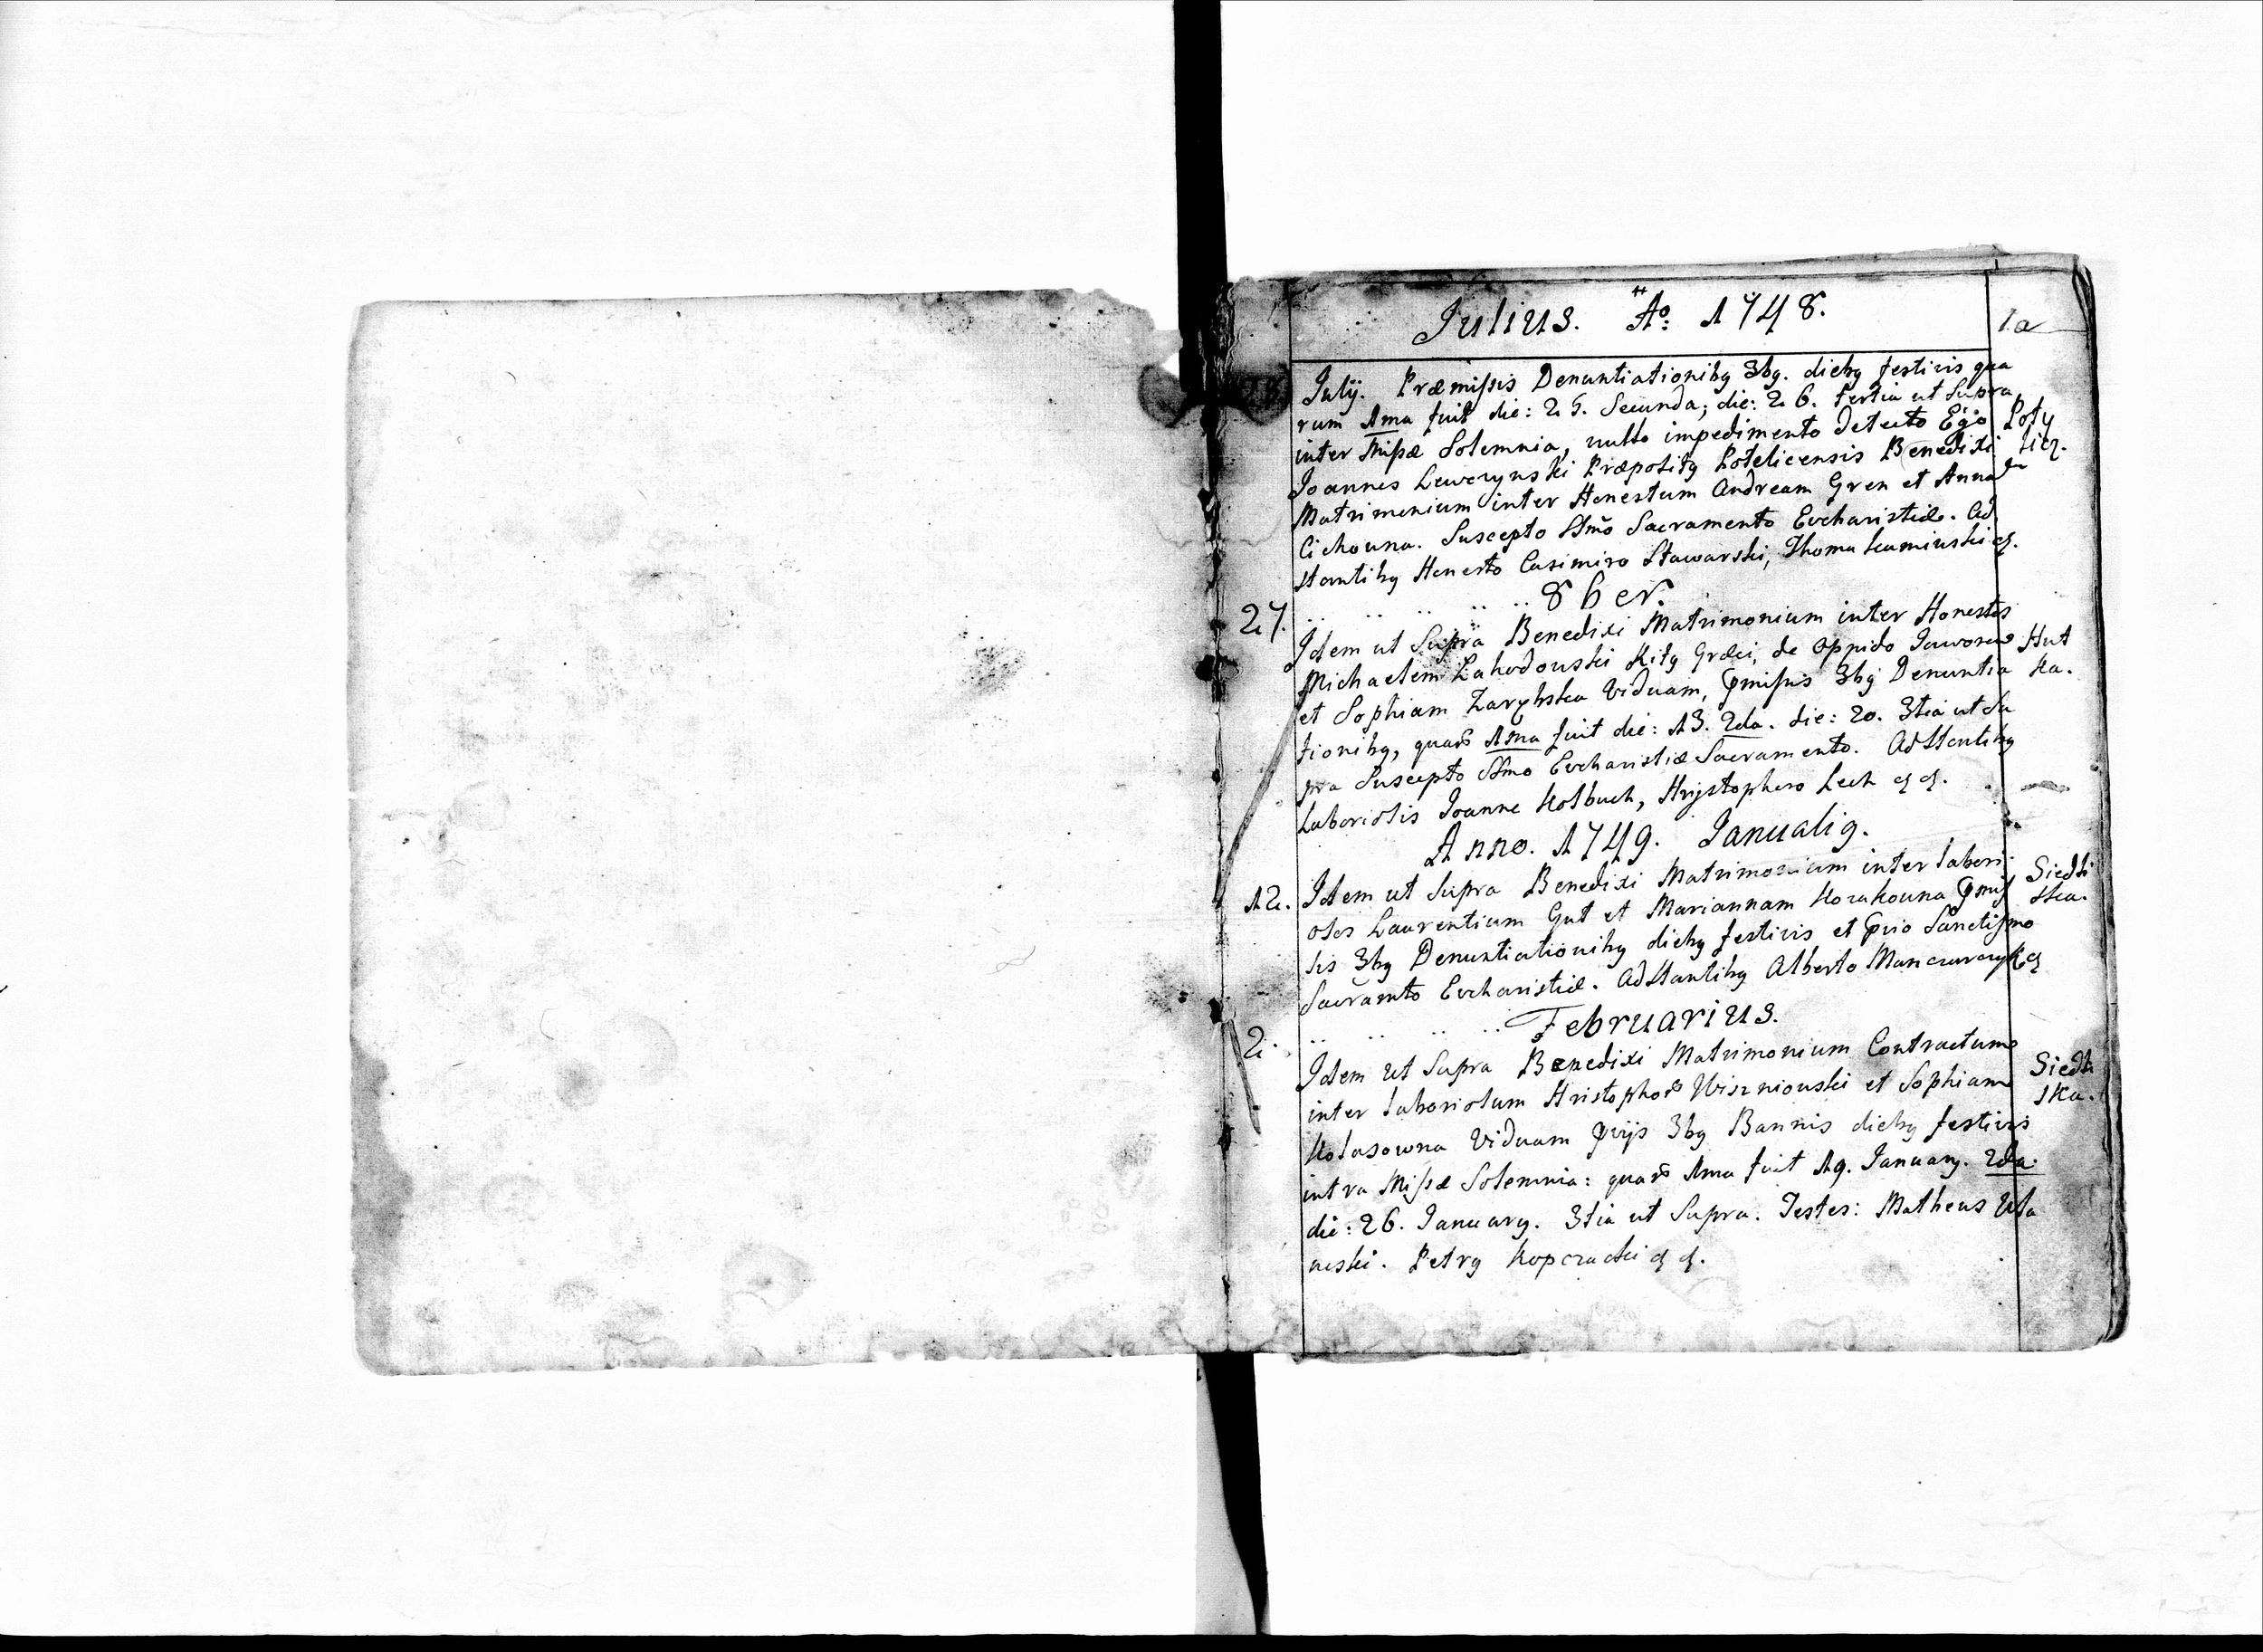 Julius. Ao: 1748.
1a
28.
July. Præmissis Denuntiationibq 3bq. diebq festivis qua
rum 1ma fuit die: 25. Secunda; die: 26. tertia ut Supra
inter Missæ Solemnia, nullo impedimento detecto Ego
Poty
licz.
Joannes Lewczynski Præpositq Potelicensis Benedixi
Matrimonium inter Honestum Andream Gren et Anna
Cichouna. Suscepto SSmo Sacramento Eucharistiæ. Ad
stantibq Honesto Casimiro Stawarski, Thoma Kaminski
8ber.
27.
Idem ut Supra Benedixi Matrimonium inter Honestos
Hut
ka.
Michaelem Lahodouski Ritq Græci, de Oppido Jaworow
et Sophiam Viduam, Pmissis 3bq Denuntia
tionibq, quar 1ma fuit die: 13. 2da. die: 20. 3tia ut Su
pra Suscepto SSmo Eucharistiæ Sacramento. Adstantibq
Laboriosis Joanne Kolbuch, Hrystophoro Lech
Anno. 1749. Januariq.
12.
Idem ut Supra Benedixi Matrimonium inter labori
Siedli
ska.
osos Laurentium Gut et Mariannam Kozakouna Pmis
sis 3bq Denuntiationibq diebq festivis et Pvio Sanctissmo
Sacramto Eucharistiæ. Adstantibq Alberto
Februarius.
2.
Idem ut Supra Benedixi Matrimonium Contractum
Siedli
ska.
inter laboriosum Hristophor Wiszniouski et Sophiam
Kolasowna Viduam Pvijs 3bq Bannis diebq festivis
intra Missæ Solemnia: quar 1ma fuit 19. January. 2da.
die: 26. January. 3tia ut Supra. Testes: Matheus Ula
neski. Petrq